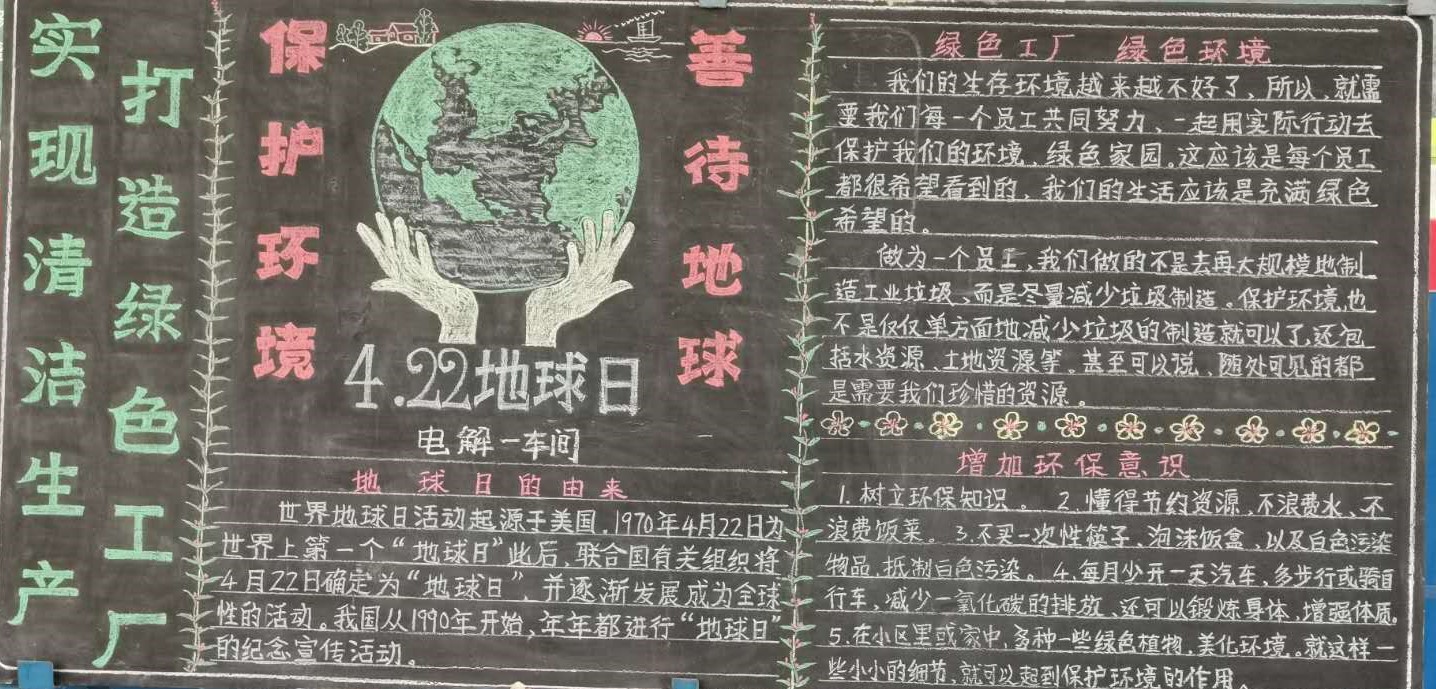 实现清洁生产
打造绿色工厂
保护环境
善待地球
4.22地球日
电解一车间
地球日的由来
世界地球日活动起源于美国,1970年4月22日为
世界上第一个“地球日”此后,联合国有关组织将
4月22日确定为“地球日”,并逐渐发展成为全球
性的活动。我国从1990年开始,年年都进行“地球日”
的纪念宣传活动。
绿色工厂 绿色环境
我们的生存环境越来越不好了、所以、就需
要我们每一个员工共同努力、一起用实际行动去
保护我们的环境、绿色家园。这应该是每个员工
都很希望看到的、我们的生活应该是充满绿色
希望的。
做为一个员工,我们做的不是去再大规模地制
造工业垃圾、而是尽量减少垃圾制造。保护环境,也
不是仅仅单方面地减少垃圾的制造就可以了,还包
括水资源、土地资源等。甚至可以说、随处可见的都
是需要我们珍惜的资源。
增加环保意识
1.树立环保知识。 2.懂得节约资源、不浪费水、不
浪费饭菜。3.不买一次性筷子、泡沫饭盒、以及白色污染
物品,抵制白色污染。4.每月少开一天汽车、多步行或骑自
行车、减少一氧化碳的排放、还可以锻炼身体、增强体质。
5.在小区里或家中、多种一些绿色植物、美化环境。就这样一
些小小的细节、就可以起到保护环境的作用。